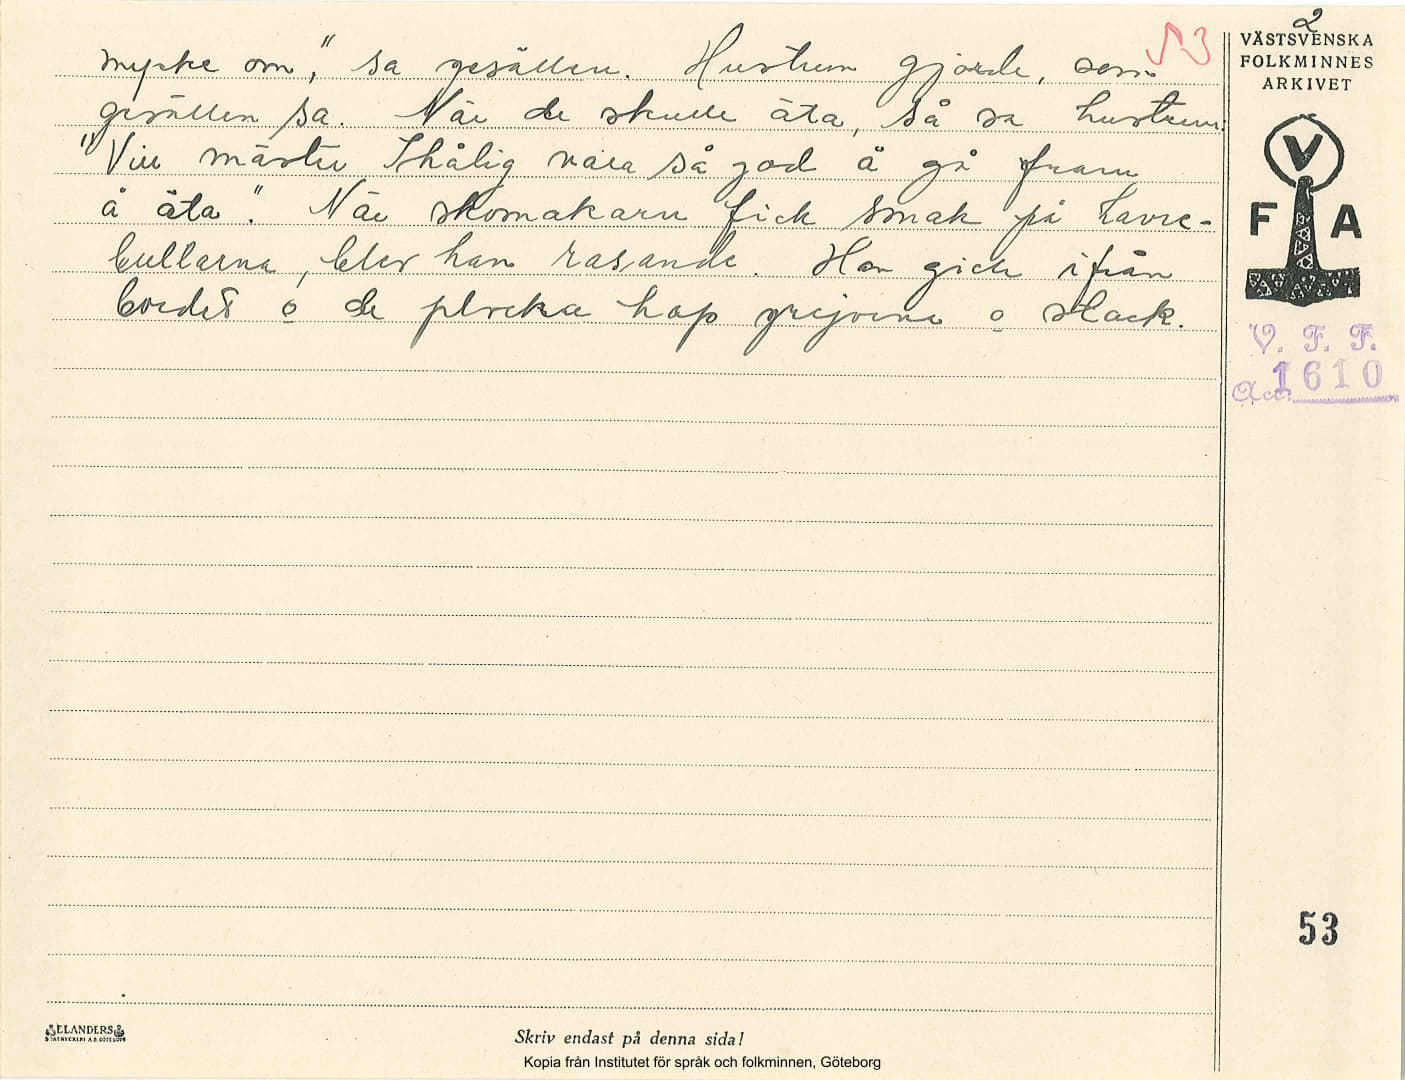 mycke om," sa gesällen. Hustrun gjorde, som
gesällen sa. När de skulle äta, så sa hustrun:
"Vill mäster Ihålig vara så god å gå fram
å äta". När skomakarn fick smak på havre-
bullarna, blev han rasande. Han gick ifrån
bordet o de plocka hop grejorna o stack.
2
VÄSTSVENSKA
FOLKMINNES
ARKIVET
V
F A
V. F. F.
Acc. 1610
53
ELANDERS
Skriv endast på denna sida!
Kopia från Institutet för språk och folkminnen, Göteborg